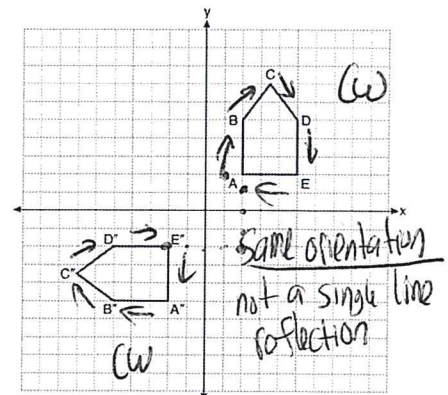 y
C
CW
B
D
A
E
x
D" E"
C"
B" A"
same orientation
not a single line
reflection
CW